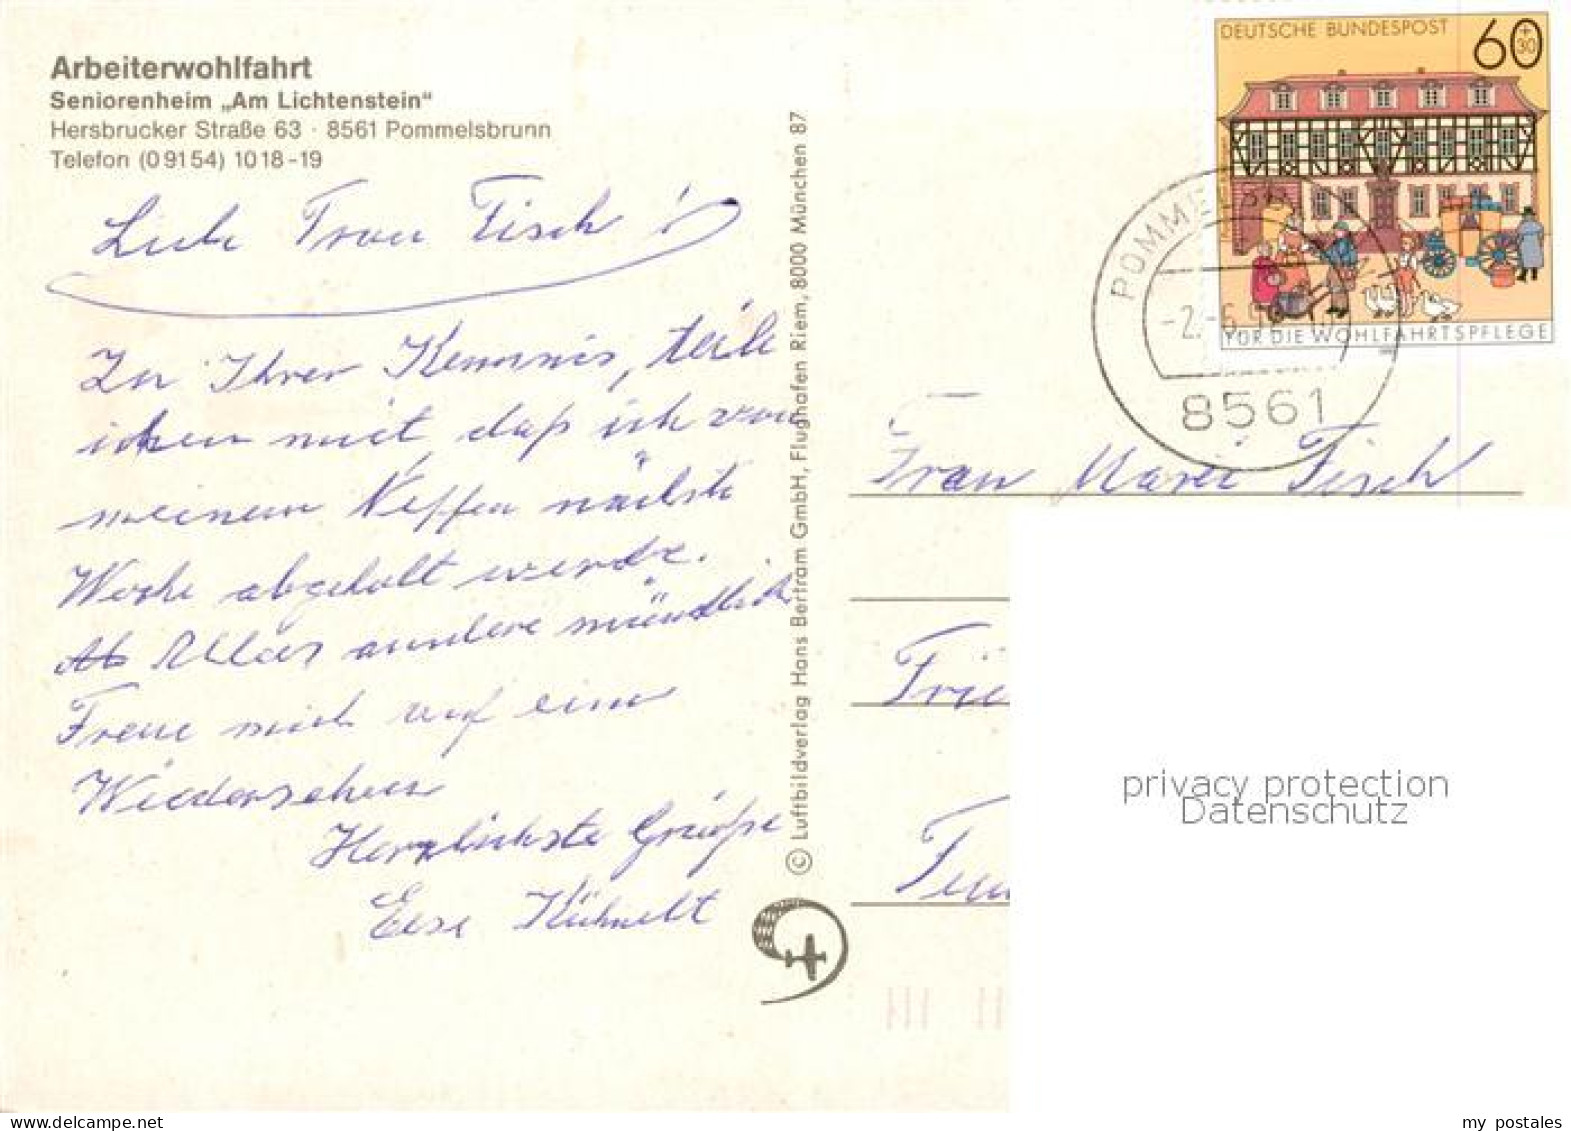 Arbeiterwohlfahrt
Seniorenheim „Am Lichtenstein“
Hersbrucker Straße 63 · 8561 Pommelsbrunn
Telefon (09154) 1018-19
Liebe Frau Fisch !
Zu Ihrer Kenntnis, teile
ihnen mit daß ich von
meinem Neffen nächste
Woche abgeholt werde.
Alles andere mündlich
Freue mich auf ein
Wiedersehen
Herzlichste Grüße
Else Kühnelt
© Luftbildverlag Hans Bertram GmbH, Flughafen Riem, 8000 München 87
DEUTSCHE BUNDESPOST
60
+
30
FÜR DIE WOHLFAHRTSPFLEGE
POMMELSB
-2.-6.
8561
Frau Marei Fisch
Frie
privacy protection
Datenschutz
my postales